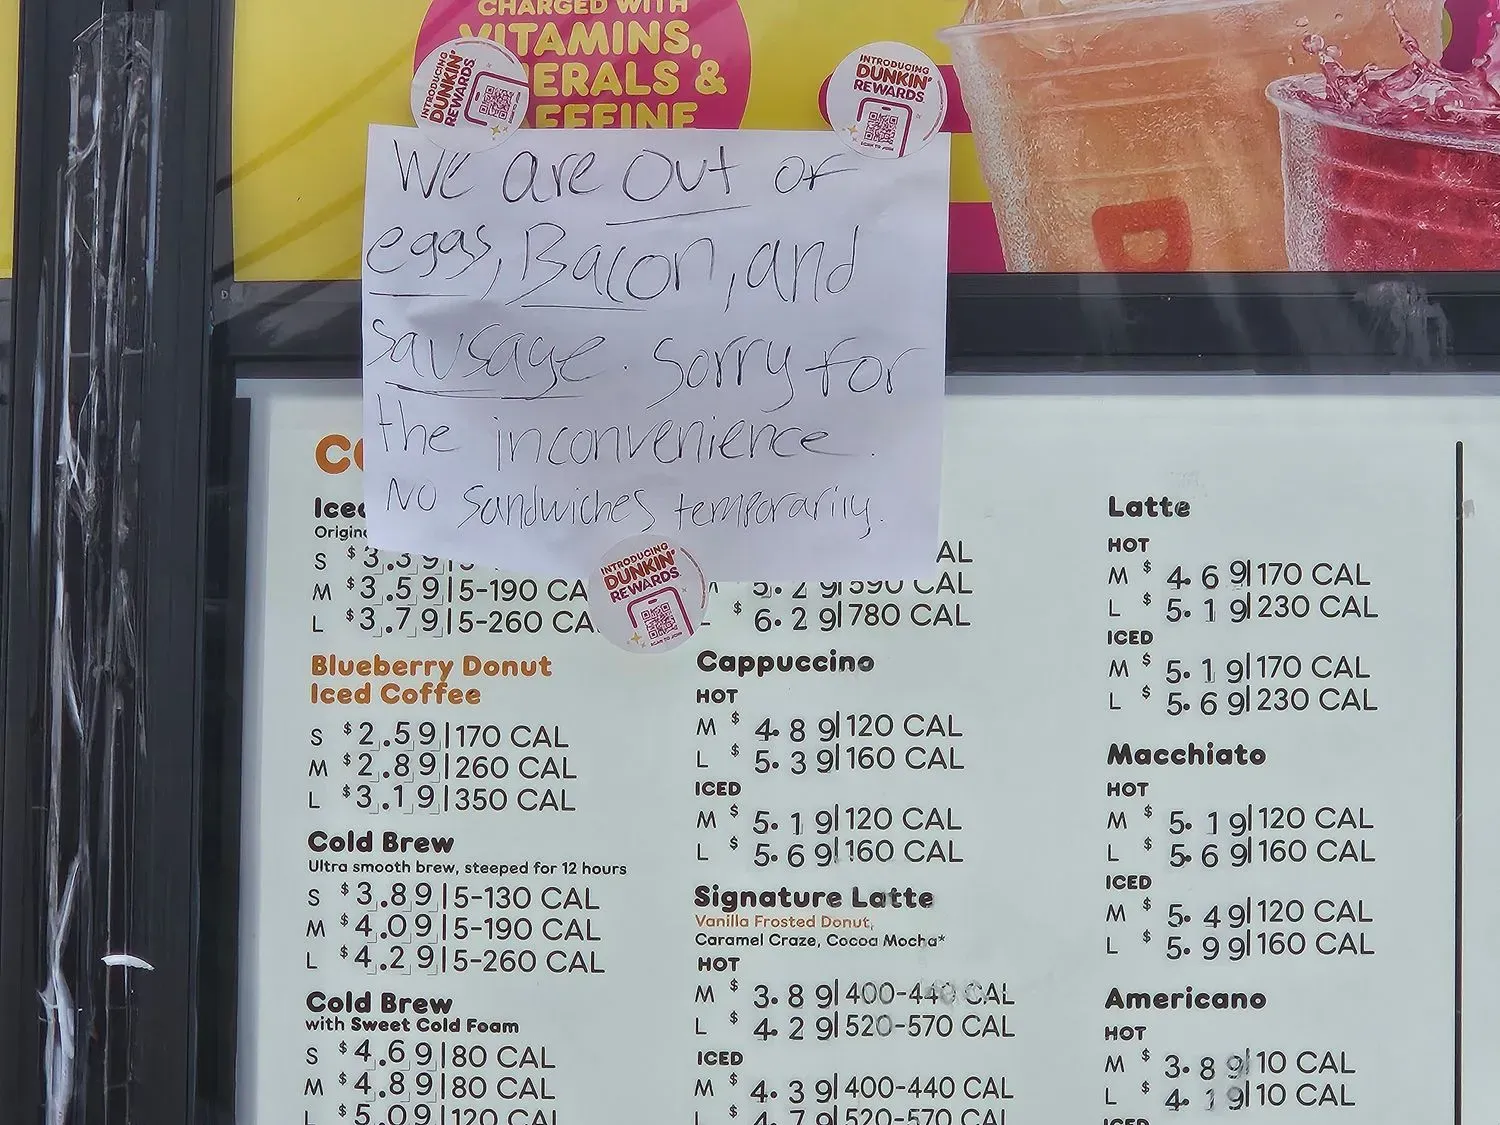 CHARGED WITH
VITAMINS,
ERALS &
INTRODUCING
DUNKIN'
REWARDS
SCAN TO JOIN
INTRODUCING
DUNKIN'
REWARDS
SCAN TO JOIN
We are out of
eggs, Bacon, and
sausage. Sorry for
the inconvenience.
No Sandwiches temporarily.
INTRODUCING
DUNKIN'
REWARDS
SCAN TO JOIN
S $3.39|5-
M $3.59|5-190 CA
L $3.79|5-260 CA
Blueberry Donut
Iced Coffee
S $2.59|170 CAL
M $2.89|260 CAL
L $3.19|350 CAL
Cold Brew
Ultra smooth brew, steeped for 12 hours
S $3.89|5-130 CAL
M $4.09|5-190 CAL
L $4.29|5-260 CAL
Cold Brew
with Sweet Cold Foam
S $4.69|80 CAL
M $4.89|80 CAL
L $5.09|120 CAL
AL
M 5.29|590 CAL
$6.29|780 CAL
Cappuccino
HOT
M $4.89|120 CAL
L $5.39|160 CAL
ICED
M $5.19|120 CAL
L $5.69|160 CAL
Signature Latte
Vanilla Frosted Donut,
Caramel Craze, Cocoa Mocha*
HOT
M $3.89|400-440 CAL
L $4.29|520-570 CAL
ICED
M $4.39|400-440 CAL
L $4.79|520-570 CAL
Latte
HOT
M $4.69|170 CAL
L $5.19|230 CAL
ICED
M $5.19|170 CAL
L $5.69|230 CAL
Macchiato
HOT
M $5.19|120 CAL
L $5.69|160 CAL
ICED
M $5.49|120 CAL
L $5.99|160 CAL
Americano
HOT
M $3.89|10 CAL
L $4.19|10 CAL
ICED